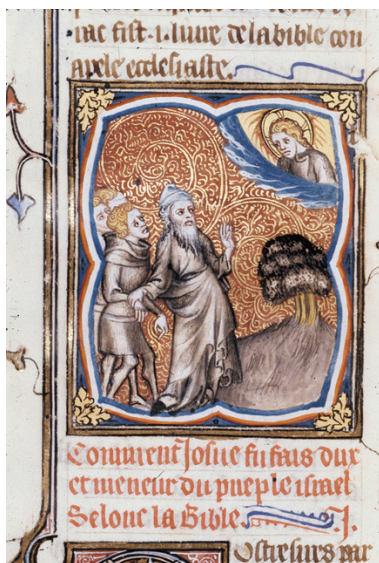 iac fist .i. liure de la bible con
apele ecclesiaste.
Comment Josue fu fais dux
et meneur du pueple israel
Selonc la Bible. I.